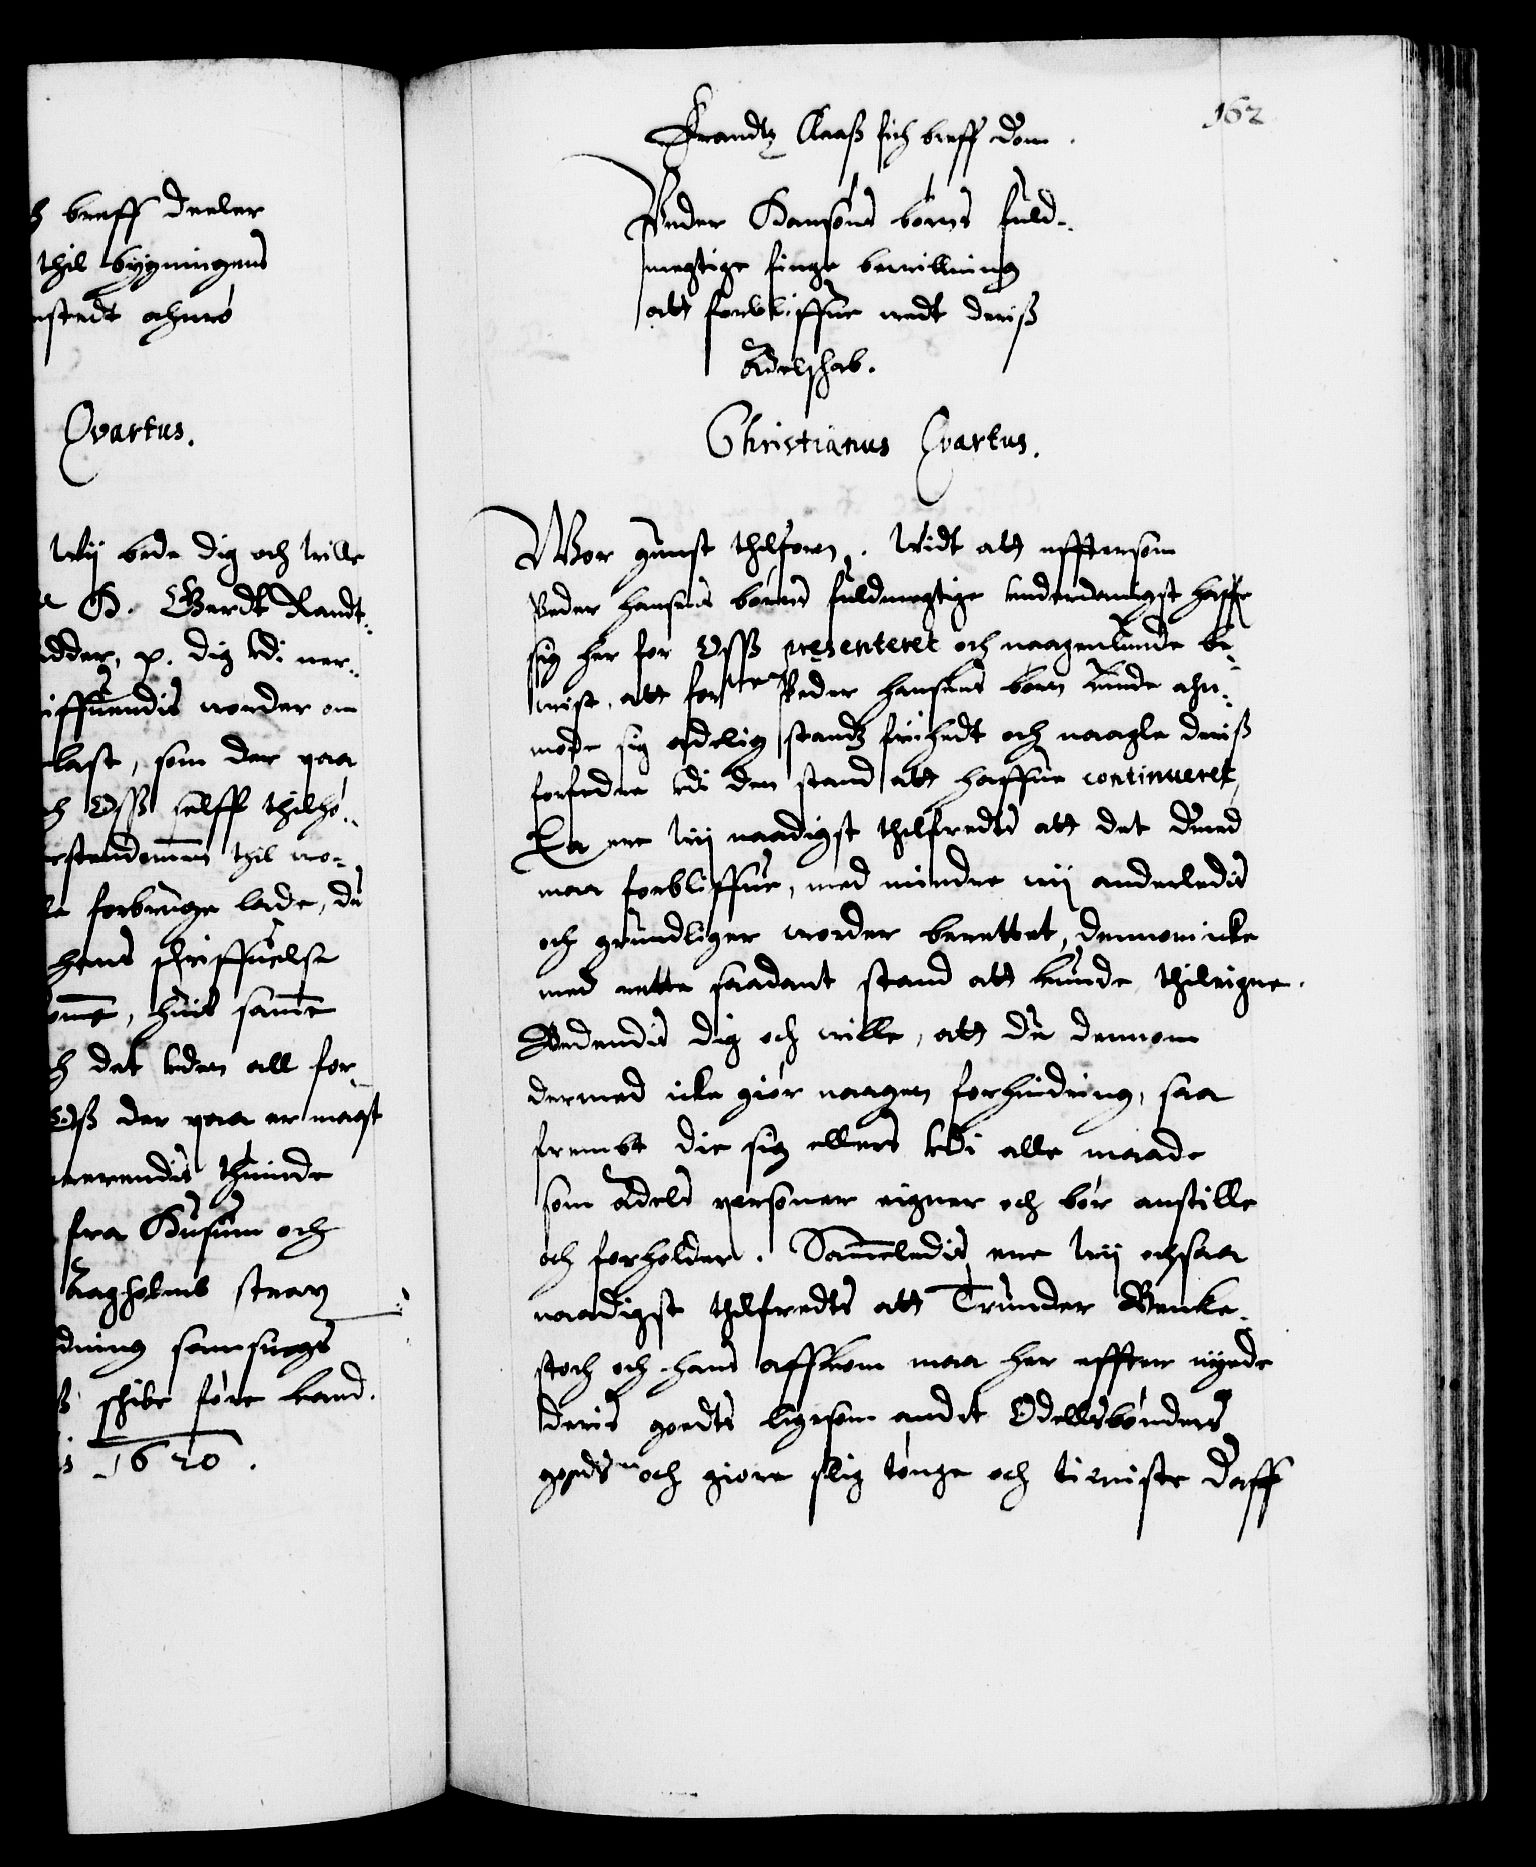 breff deeler
thil bygningens
Qvartus.
Wij bede dig och wille
H. Gerdt Randt-
adder, p. dig udi ner-
iffuendis worder om
last, som der paa
Oss selff thilhø-
erstendommen thil wo-
forbruge lade, du
hans schriffuelse
omme, huis samme
det uden all for-
Oss der paa er magt
thuinde
fra Husum och
Aagholmb strax
dning somsuegs
schibe føre kand.
1620.
162
Frandtz Claass fich breff dom.
Peder Hansøns børns fuld-
megtige finge bewillning
att forbliffue wedt deriss
Adelschab.
Christianus Qvartus.
Wor gunst thilforn. Widt att efftersom
Peder Hansens børns fuldmegtige underdanigst haffr
sig her for Oss presenteret och naagenlunde be-
wist, att forne Peder Hansens børn kunde ahn-
mode sig adelig standtz friihedt och naagle deriss
forfedre udi den stand att haffue continueret,
Da ere wij naadigst thilfredts att det dermed
maa forbliffue, med mindre wij anderledis
och grundliger worder berettet, dennom icke
med rette saadant stand att kunde thileigne.
Bedendis dig och wille, att du dennom
dermed icke giør naagen forhindring, saa
frembt die sig ellers udi alle maade
som Adels personer eigner och bør anstille
och forholder. Sammeledis ere wij ochsaa
naadigst thilfredts att Trunder Benke-
stoch och hans affkom maa her effter nyede
deris goedts ligesom andet Odellsbønders
goeds och giøre slig tønge och tieniste deraff